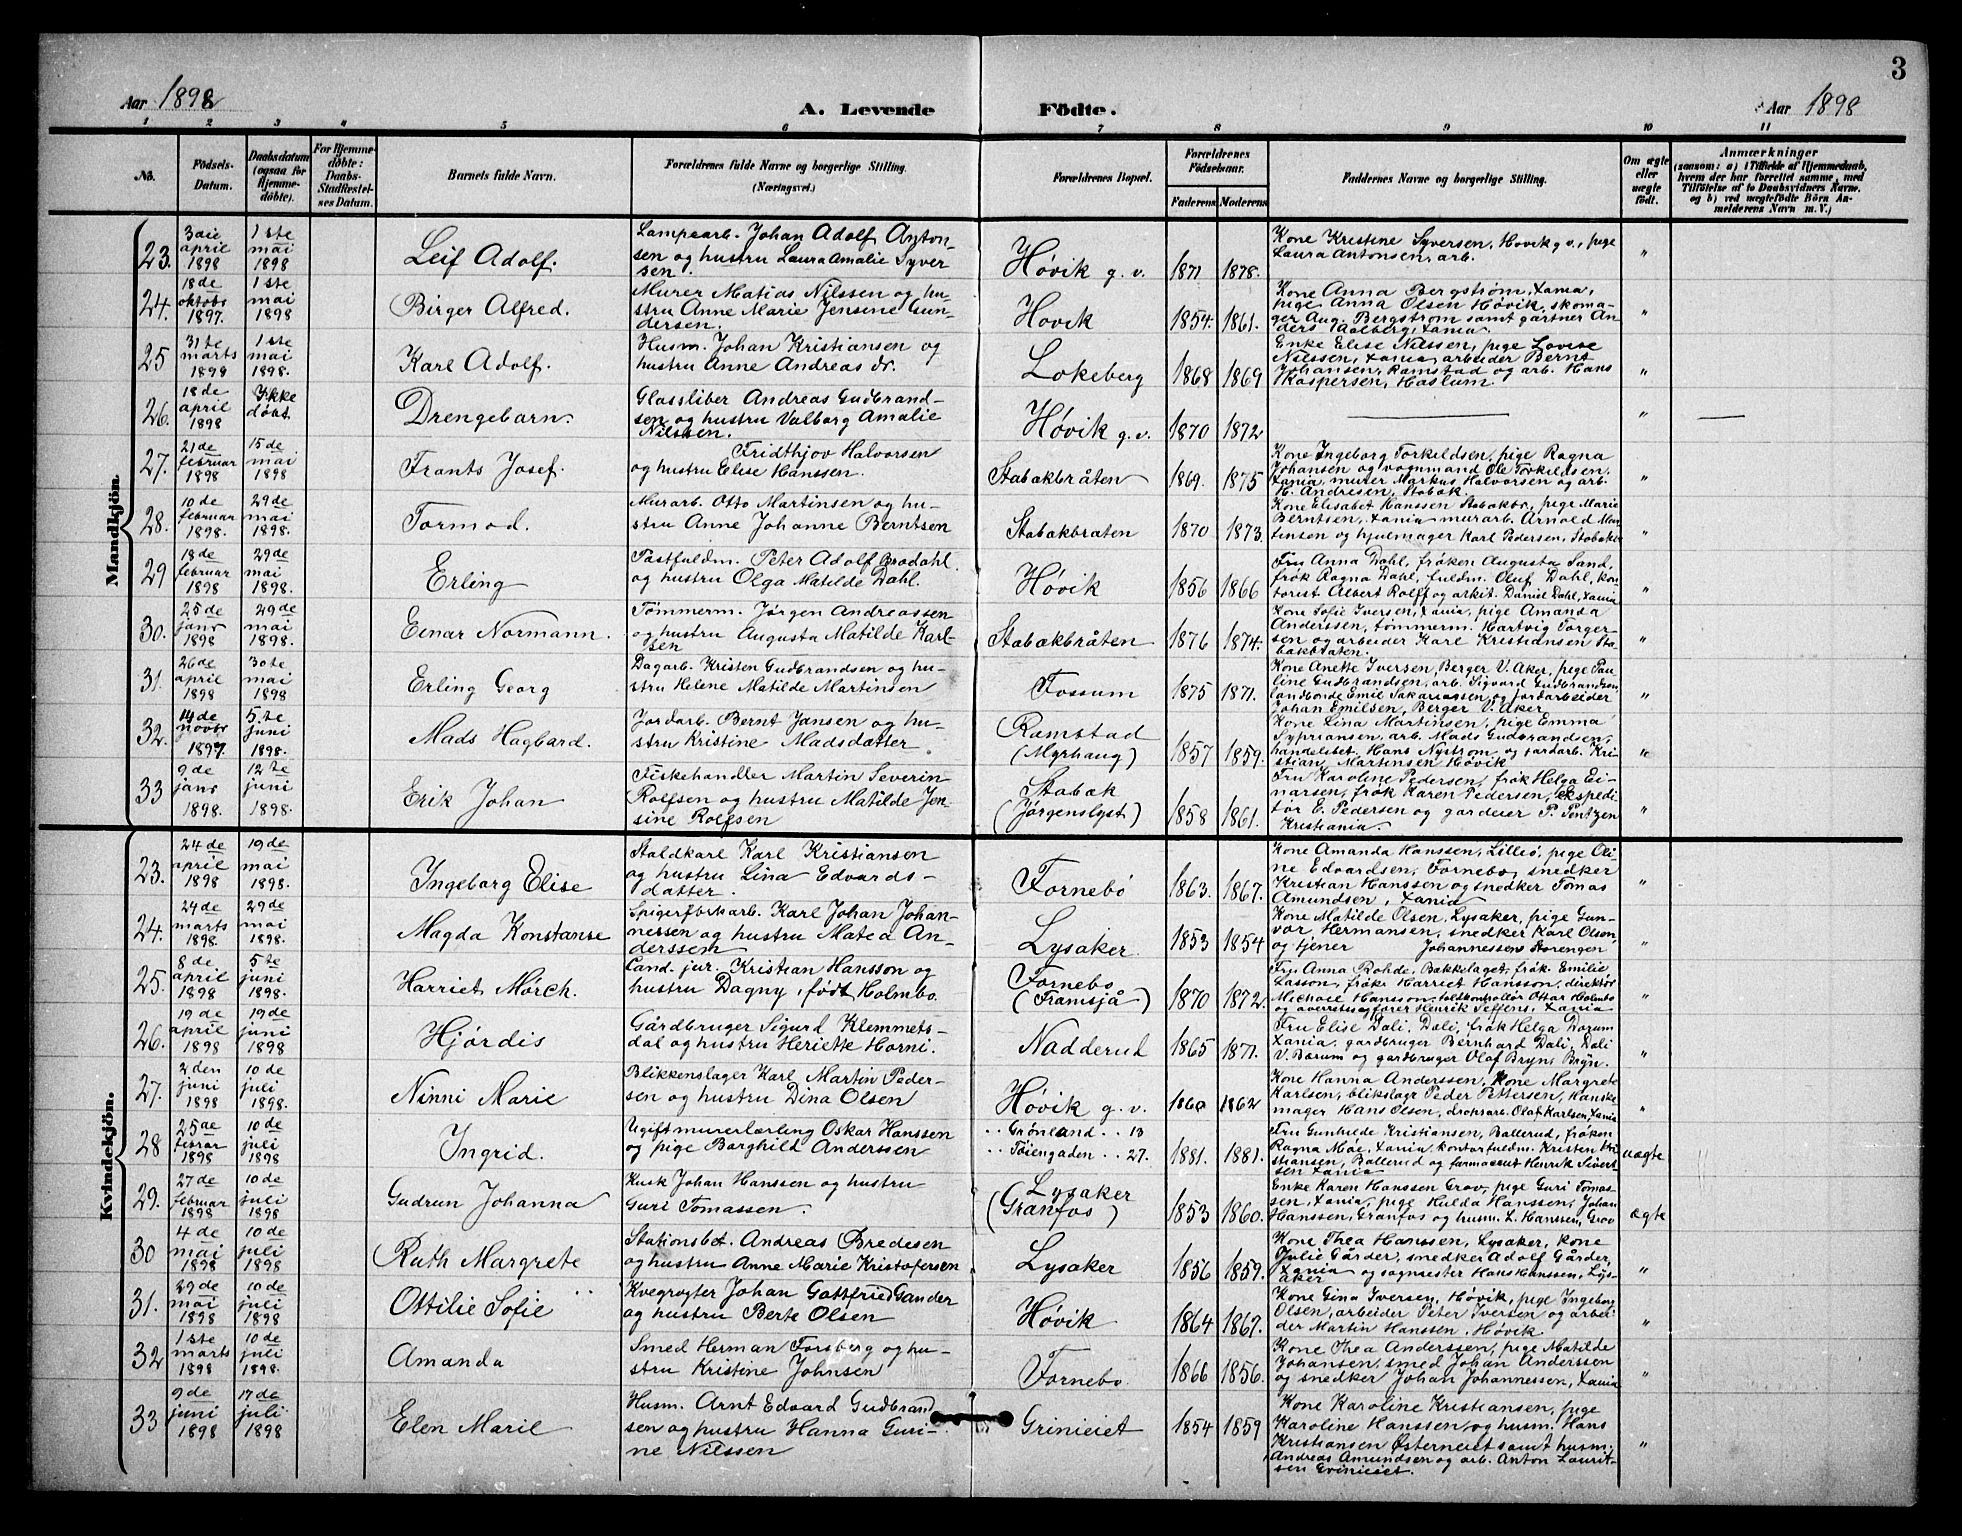 3
Aar 1898 A. Levende Födte. Aar 1898
1 2 3 4 5 6 7 8 9 10 11
No. Födsels-Datum. Daabsdatum (ogsaa for Hjemmedöbte). For Hjemmedöbte: Daabs-Stadfæstelses Datum. Barnets fulde Navn. Forældrenes fulde Navne og borgerlige Stilling. (Næringsvei.) Forældrenes Bopæl. Forældrenes Födselsaar. Faderens Moderens Faddernes Navne og borgerlige Stilling. Om ægte eller uægte födt. Anmærkninger (saasom: a) i Tilfælde af Hjemmedaab, hvem der har forrettet samme, med Tilföielse af to Daabsvidners Navne, og b) ved uægtefödte Börn Anmelderens Navn m. V.)
Mandkjön.
23. 3die april 1898 1ste mai 1898 Leif Adolf. Lampearb. Johan Adolf Antonsen og hustru Laura Amalie Syversen. Høvik g. v. 1871 1878. Kone Kristine Syversen, Høvik g.v., pige Laura Antonsen, arb. "
24. 18de oktobr 1897. 1ste mai 1898 Birger Alfred. Murer Matias Nilssen og hustru Anne Marie Jensine Gundersen. Høvik 1854. 1861. Kone Anna Bergstrøm, Xania, pige Anna Olsen Høvik, skomager Aug. Bergstrøm samt gartner Anders Aalberg, Xania. "
25 31te marts 1898 1ste mai 1898. Karl Adolf. Husm. Johan Kristiansen og hustru Anne Andreas dr. Løkeberg 1868 1869 Enke Elise Nilssen, pige Lovise Nilssen, Xania, arbeider Bernt Johansen, Ramstad og arb. Hans Kaspersen, Haslum. "
26. 18de april 1898 Ikke døbt. Drengebarn. Glassliber Andreas Gudbrandsen og hustru Valborg Amalie Nilssen. Høvik g. v. 1870 1872 "
27. 21de februar 1898 15de mai 1898 Frants Josef. Fridthjov Halvorsen og hustru Elise Hanssen. Stabækbråten 1869. 1875 Kone Ingeborg Torkildsen, pige Ragna Johansen og vognmand Ole Torkildsen, Xania, murer Markus Halvorsen og arb. H. Andresen, Stabæk. "
28. 10de februar 1898. 29de mai 1898. Tormod. Murarb. Otto Martinsen og hustru Anne Johanne Berntsen Stabækbråten 1870 1873. Kone Elisabet Hanssen Stabækbr, pige Marie Berntsen, Xania murarb. Arnold Martinsen og hjulmager Karl Pedersen, Stabæk "
29 18de februar 1898 29de mai 1898. Erling Postfuldm. Peter Adolf Brodahl og hustru Olga Matilde Dahl. Høvik 1856 1866 Fru Anna Dahl, frøken Augusta Sand, frøk Ragna Dahl, fuldm. Oluf Dahl, kontorist Albert Rolff og arkit. Daniel Dahl, Xania "
30. 25de janr 1898 29de mai 1898. Einar Normann. Tømmerm. Jørgen Andreassen og hustru Augusta Matilde Karlsen Stabækbråten 1876 1874. Kone Sofie Iversen, Xania, pige Amanda Anderssen, tømmerm. Hartvig Torgersen og arbeider Karl Kristiansen Stabækbråten. "
31. 26de april 1898 30te mai 1898 Erling Georg Dagarb. Kristen Gudbrandsen og hustru Helene Matilde Martinsen Fossum 1875 1871. Kone Anette Iversen, Berger V. Aker, pige Pauline Gudbrandsen, arb. Sigvard Gudbrandsen, landbonde Emil Sakariassen og jordarbeider Johan Emilsen, Berger V. Aker "
32. 14de novbr 1897 5te juni 1898. Mads Hagbard. Jordarb. Bernt Jansen og hustru Kristine Madsdatter. Ramstad (Myrhaug) 1857 1859. Kone Lina Martinsen, pige Emma Sypriansen, arb. Mads Gudbrandsen, handelsbet. Hans Nystrøm og jordarb. Kristian Martinsen Høvik "
33 9de janr 1898. 12te juni 1898. Erik Johan Fiskehandler Martin Severin Rolfsen og hustru Matilde Jensine Rolfsen Stabæk (Jørgenslyst) 1858 1861. Fru Karoline Pedersen, frøk Helga Einarsen, frøk Karen Pedersen, ekspeditør E. Pedersen og garderer P. Pentzen Kristiania. "
Kvindekjön.
23. 24de april 1898 19de mai 1898. Ingeborg Elise Staldkarl Karl Kristiansen og hustru Lina Edvardsdatter. Fornebo 1863. 1867. Kone Amanda Hanssen, Lilleø, pige Oline Edvardsen, Fornebo, snedker Kristian Hanssen og snedker Tomas Amundsen, Xania "
24. 24de marts 1898. 29de mai 1898. Magda Konstanse Spigerfabrkarb. Karl Johan Johannessen og hustru Matea Anderssen Lysaker 1853 1854 Kone Matilde Olsen, Lysaker, pige Gunvor Hermansen, snedker Karl Olson, og tjener Johannessen Storengen "
25. 8de april 1898 5te juni 1898. Harriet Mørch. Cand. jur. Kristian Hansson og hustru Dagny, født Holmbo. Fornebo (Framsjå) 1870 1872. Fru Anna Rohde, Bækkelaget, frøk. Emilie Lasson, frøk. Harriet Hansson, direktør Michael Hansson, toldkontrollør Ottar Holmbo og overretssagfører Henrik Seffens, Xania "
26. 19de april 1898 19de juni 1898 Hjørdis Gårdbruger Sigurd Klemmetsdal og hustru Heriette Horni. Nadderud 1865 1871. Fru Elise Dæli, Dæli, frøk Helga Borum Xania, gardbruger Bernhard Dæli, Dæli V. Bærum og gardbruger Olaf Bryn, Bryn. "
27. 2den juni 1898 10de juli 1898. Ninni Marie Blikkenslager Karl Martin Pedersen og hustru Dina Olsen Høvik g. v. 1860 1862 Kone Hanna Anderssen, kone Margrete Karlsen, blikslagr Peder Pettersen, Hanskemager Hans Olsen, dropsarb. Olaf Karlsen, Xania "
28 25de febrar 1898 10de juli 1898 Ingrid. Ugift murerlærling Oskar Hanssen og pige Borghild Anderssen Grønland 13 Tøiengaden 27. 1881. 1881. Fru Gunhilde Kristiansen, Ballerud, frøken Ragna Moe, Xania, kontorfuldm. Kristen Kristiansen, Ballerud og farmaceut Henrik Sivertsen Xania uægte
29. 27de februar 1898 10de juli 1898 Gudrun Johanna Kusk Johan Hanssen og hustru Guri Tomassen. Lysaker (Granfos) 1853 1860. Enke Karen Hanssen Grav, pige Guri Tomassen, Xania, pige Hulda Hanssen, Johan Hanssen, Granfos og husm. L. Hanssen, Grav ægte
30 4de mai 1898 10de juli 1898 Ruth Margrete Stationsbet. Andreas Bredesen og hustru Anne Marie Kristofersen Lysaker 1856 1859. Kone Thea Hanssen, Lysaker, kone Julie Gårder, snedker Adolf Gårder, Xania og sagmester Hans Hanssen, Lysaker "
31. 29de mai 1898 10de juli 1898 Ottilie Sofie Kvegrøgter Johan Gottfried Gander og hustru Berte Olsen Høvik 1864 1867. Kone Gina Iversen, Høvik, pige Ingeborg Olsen, arbeider Peter Iversen og arbeider Martin Hanssen, Høvik "
32 1ste marts 1898 10de juli 1898. Amanda Smed Herman Forsberg og hustru Kristine Johnsen Fornebo. 1866 1856. Kone Thea Anderssen, pige Matilde Johansen, smed Johan Anderssen og snedker Johan Johannessen, Xania "
33 9de juni 1898 17de juli 1898 Elen Marie Husm. Arnt Edvard Gudbrandsen og hustru Hanna Gurine Nilssen Grinieiet 1854 1859 Kone Karoline Kristiansen, pige Karoline Hanssen og husm. Hans Kristiansen Østerneiet samt husm. Andreas Amundsen og arb. Anton Lauritsen Grinieiet. "